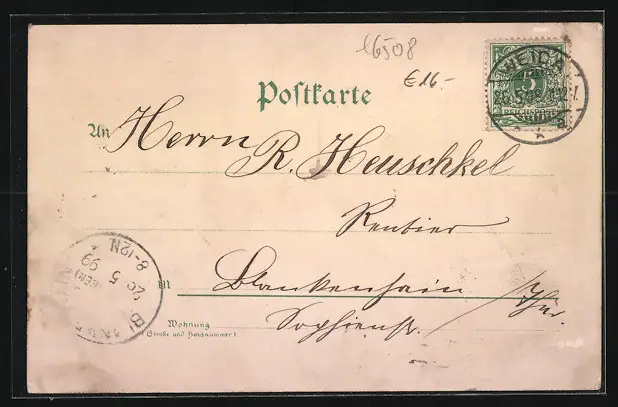 16508
€ 16.-
WEIDA
5
REICHSPOST
Postkarte
An Herrn R. Heuschkel
Rentier
in Blankenhain / Thür.
Wohnung
(Straße und Hausnummer)
Sophienstr.
26 5 99
8-12N.